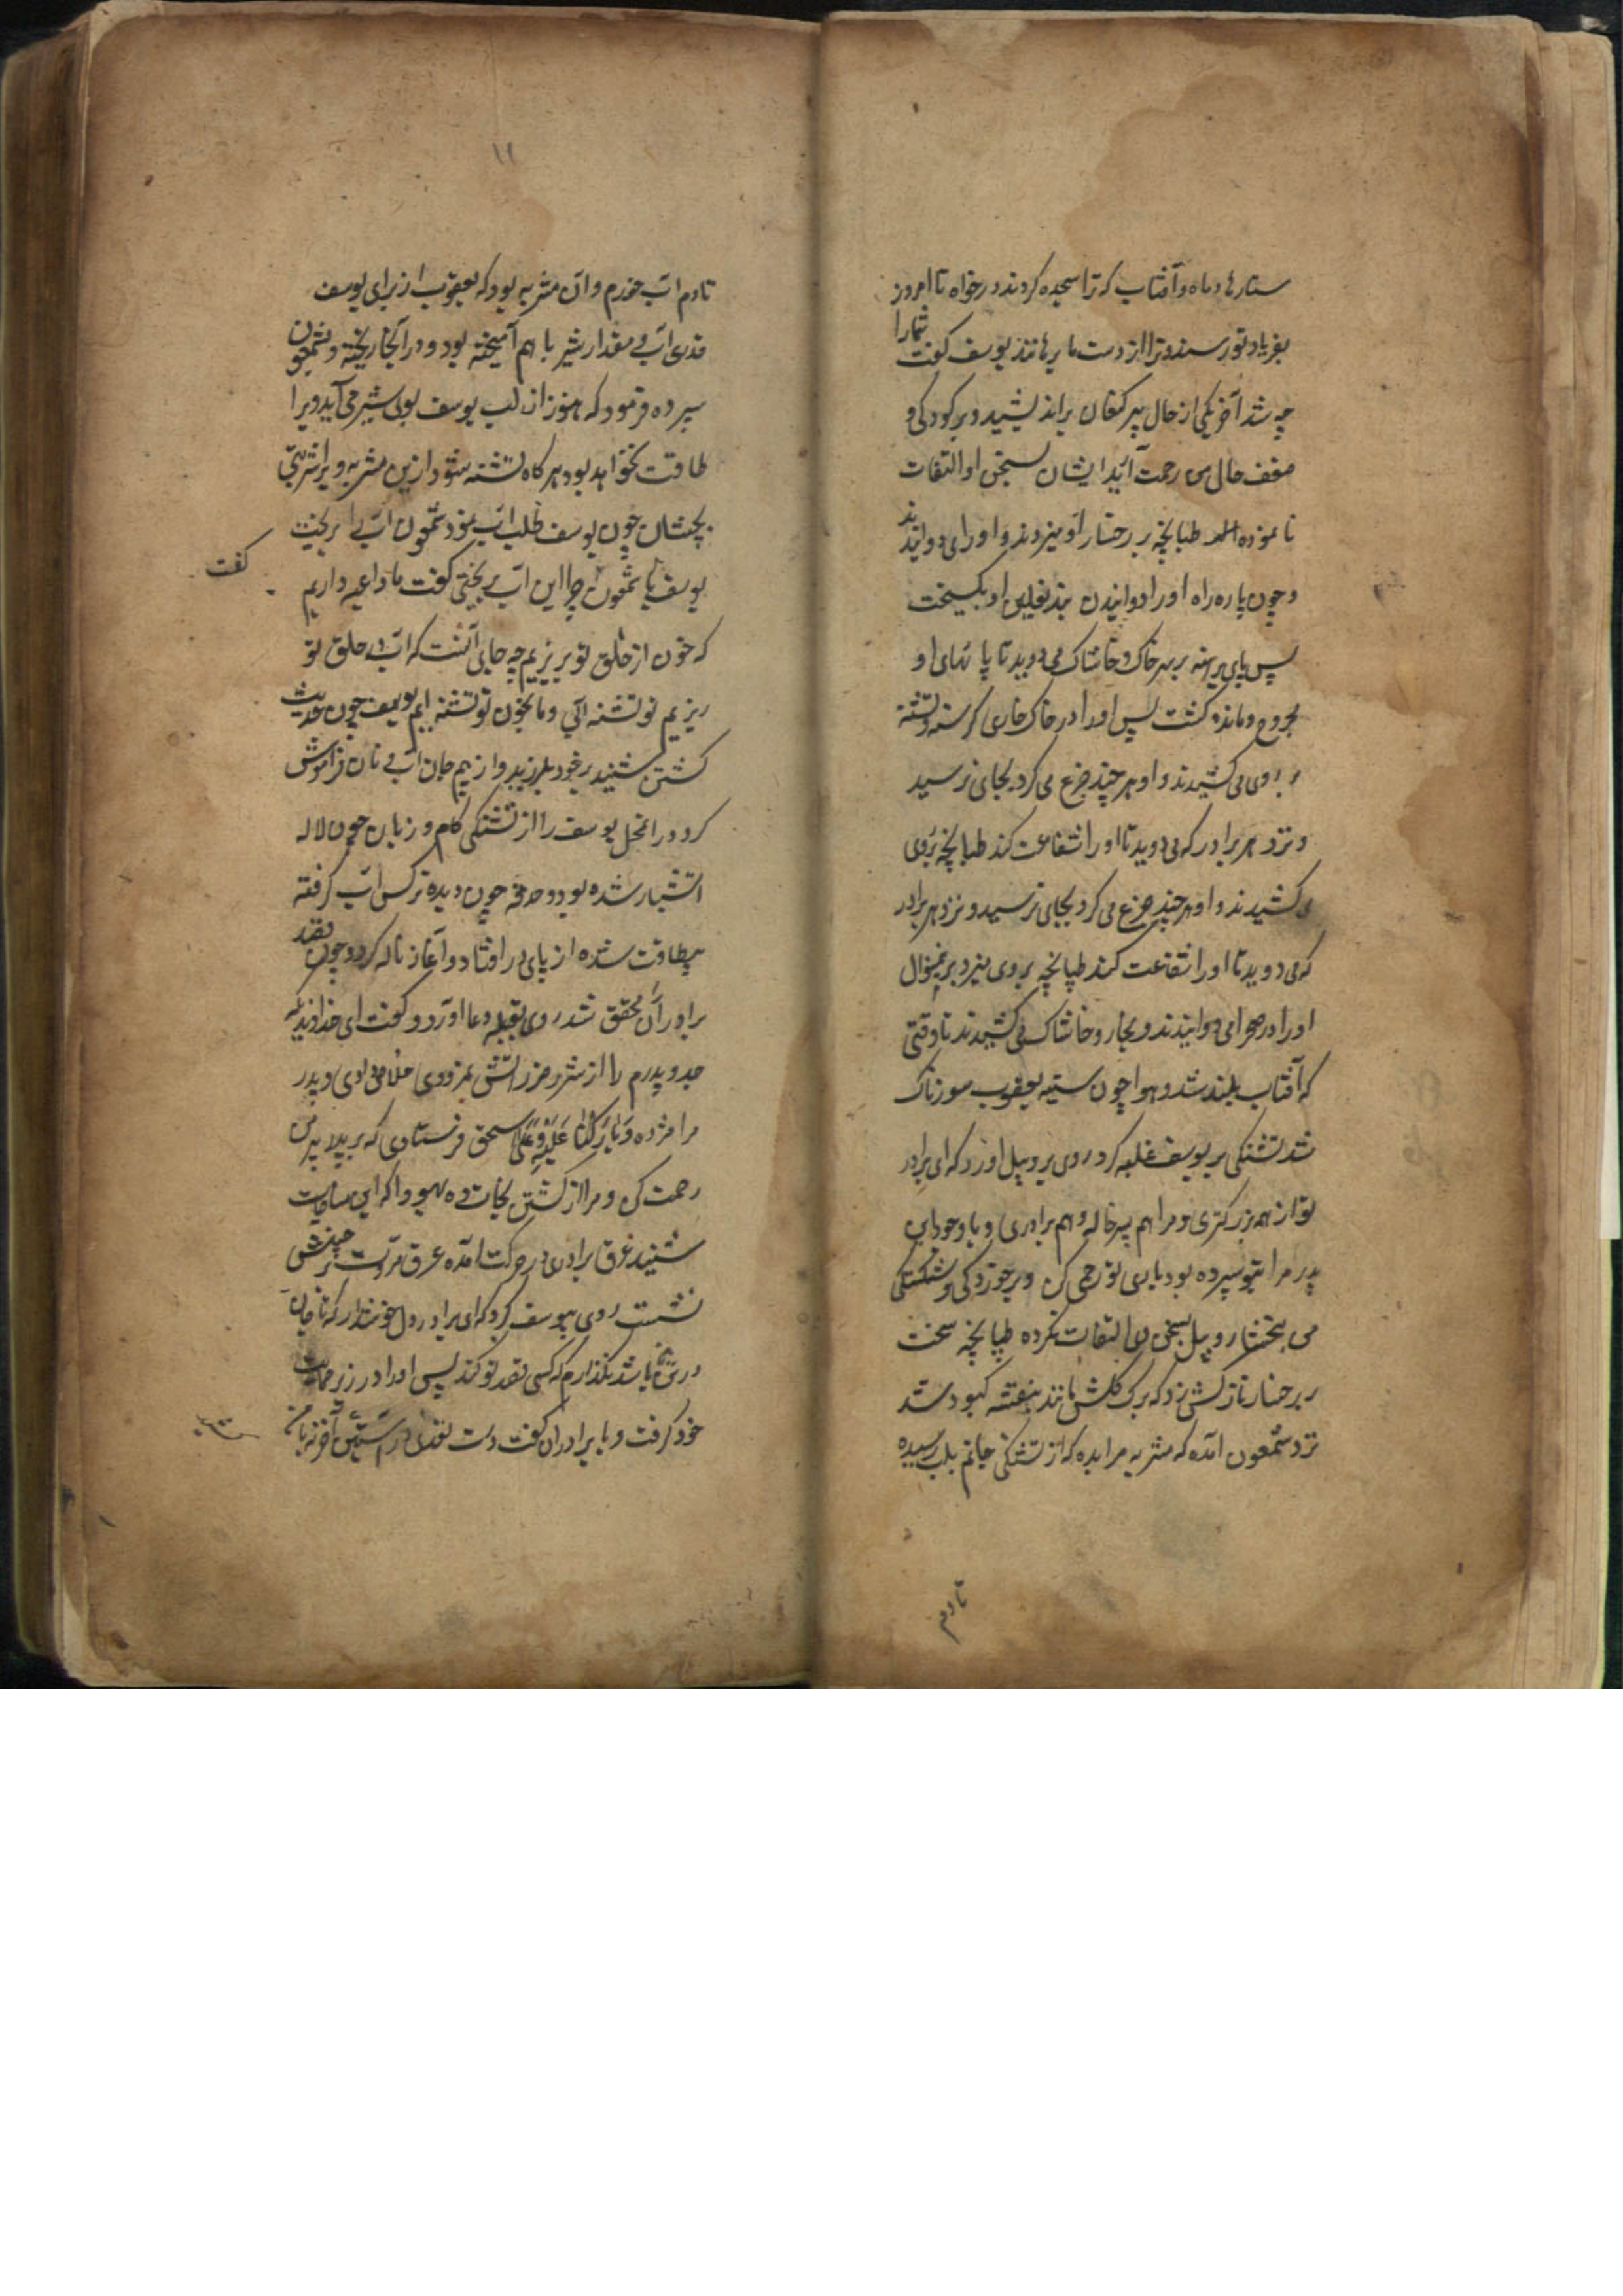 ستارها و ماه و آفتاب که ترا سجده کردند درخواه تا امروز
بفریاد تو رسند و ترا از دست ما برهانند یوسف گفت شمارا
چه شد آخر یکی از حال پیر کنعان براندیشید و بر کودکی و
ضعف حال من رحمت آرید ایشان بسخن او التفات
نانموده طبانچه بر رخسار او میزدند و او را می دوانیدند
و چون پاره راه او را دوانیدن بند نعلین او بگسیخت
پس پای برهنه بر سر خاک و خاشاک می دوید تا پا نهای او
مجروح و مانده گشت پس او را در خاک خاری گرسنه و تشنه
بروی می کشیدند و او هر چند جزع می کرد بجای نرسید
و نزد هر برادر که می دوید تا او را شفاعت کند طبانچه بروی
می کشیدند و او هر چند جزع می کرد بجای نرسید و نزد هر برادر
که می دوید تا او را شفاعت کند طپانچه بروی میزد بر ینمنوال
او را در صحرا می دوانیدند و بخار و خاشاک می کشیدند تا وقتی
که آفتاب بلند شد و هوا چون سینه یعقوب سوزناک
شد تشنگی بر یوسف غلبه کرد روی بروبیل اورد که ای برادر
تو از همه بزرگتری و مرا هم پسر خاله و هم برادری و با وجود این
پدر مرا بتو سپرده بود باری تو رحمی کن و بر خوردگی و شکستگی
من ببخشا روبیل بسخن وی التفات نکرده طپانچه سخت
بر رخسار نازکش زد که برک گلش مانند بنفشه کبود شد
نزد شمعون امده که مشربه مرا بده که از تشنگی جانم بلب رسیده
تا دم
۱۱
تا دم اب خورم و ان مشربه بود که یعقوب از برای یوسف
قدری اب و مقدار شیر با هم آمیخته بود و در آنجا ریخته و بشمعون
سپرده فرمود که هنوز از لب یوسف بوی شیر می آید ویرا
طاقت نخواهد بود هر کاه تشنه شود ازین مشربه ویرا شربتی
بچشان چون یوسف طلب اب نمود شمعون اب را بریخت
یوسف یا شمعون چرا این اب بریختی کفت ما داعیه داریم
کفت
که خون از حلق تو بریزیم چه جای آنست که اب در حلق تو
ریزیم تو تشنه آبی و ما بخون تو تشنه ایم یوسف چون حدیث
کشتن شنید بر خود بلرزید و از بیم جان اب و نان فراموش
کرد در انمحل یوسف را از تشنگی کام و زبان چون لاله
اتشبار شده بود و حدقه چون دیده نرکس اب گرفته
بیطاقت شده از پای در افتاد و آغاز ناله کرد و چون قصد
برادران محقق شد روی بقبله دعا اورد و گفت ای خداوندیکه
جد و پدرم را از شر و ضرر اتش نمرودی خلاصی دادی و پدر
مرا مژده وَبَارَكْنَا عَلَيْهِ وَعَلَىٰ اسحق فرستادی که بر پدر من
رحمت کن و مرا از کشتن نجات ده یهودا که این مناجات
شنید عرق برادری در حرکت امده عرق مروت بر جبینش
نشست روی بیوسف کرد که ای برادر دل خوشدار که تا جان
در تن ما باشد نگذارم که کسی قصد تو کند پس او را در زیر حمایت
خود گرفت و با برادران گفت دست تعدی در استین